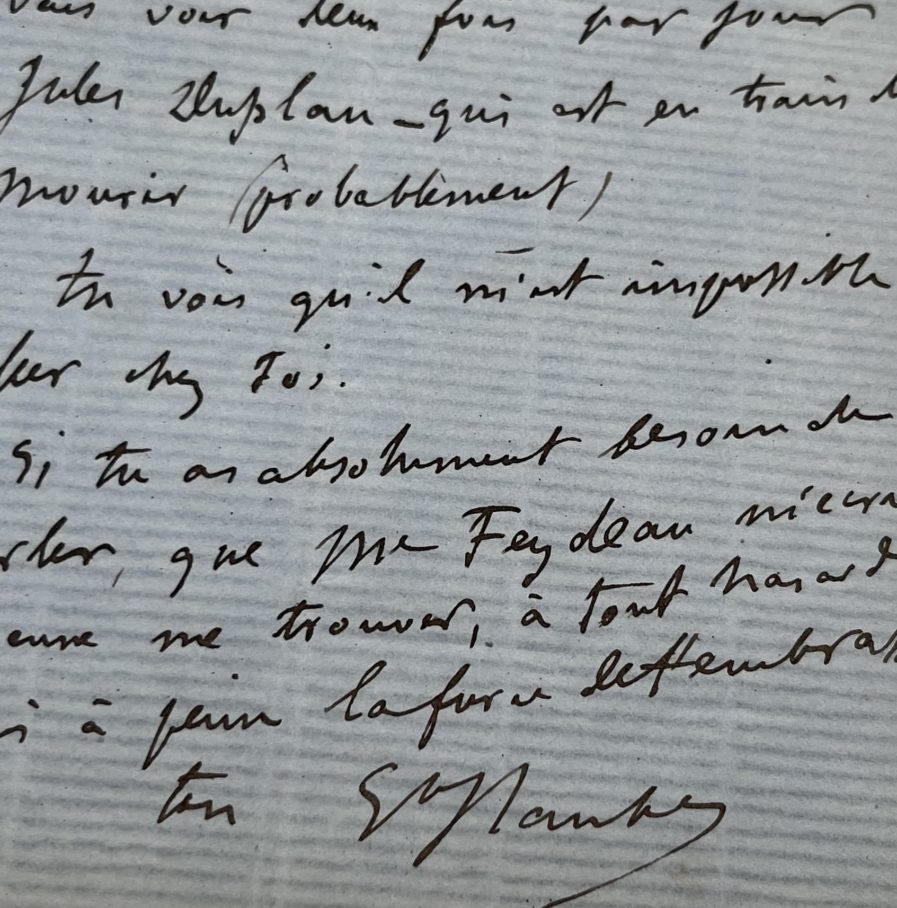 vais voir deux fois par jour
Jules Duplan - qui est en train d
mourir (probablement)
tu vois qu'il m'est impossible
ler chez Toi.
Si tu as absolument besoin de
rler, que Me Feydeau m'écri
me trouver, à tout hasard
is à peine la force de t'embrass
ton GveFlaubert